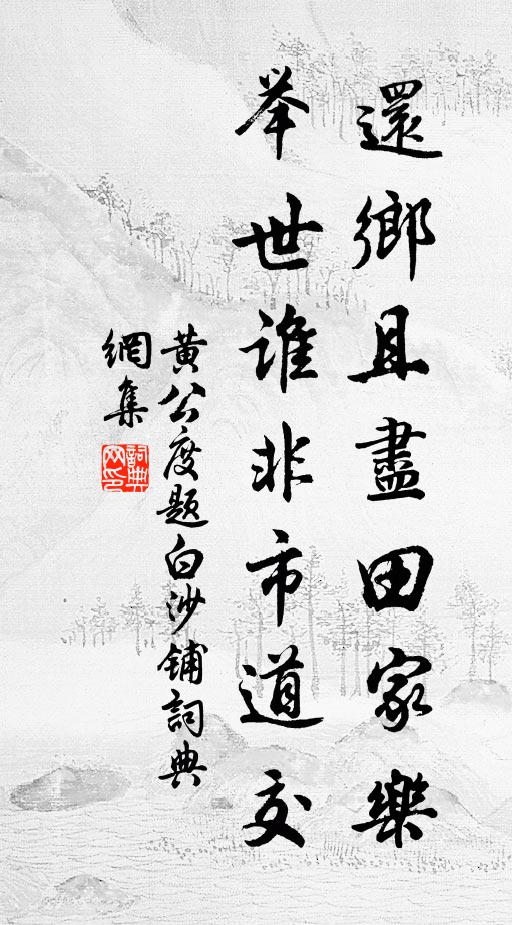 還鄉且盡田家樂
举世谁非市道交
黄公度题白沙铺詞典
網集
詞典网印